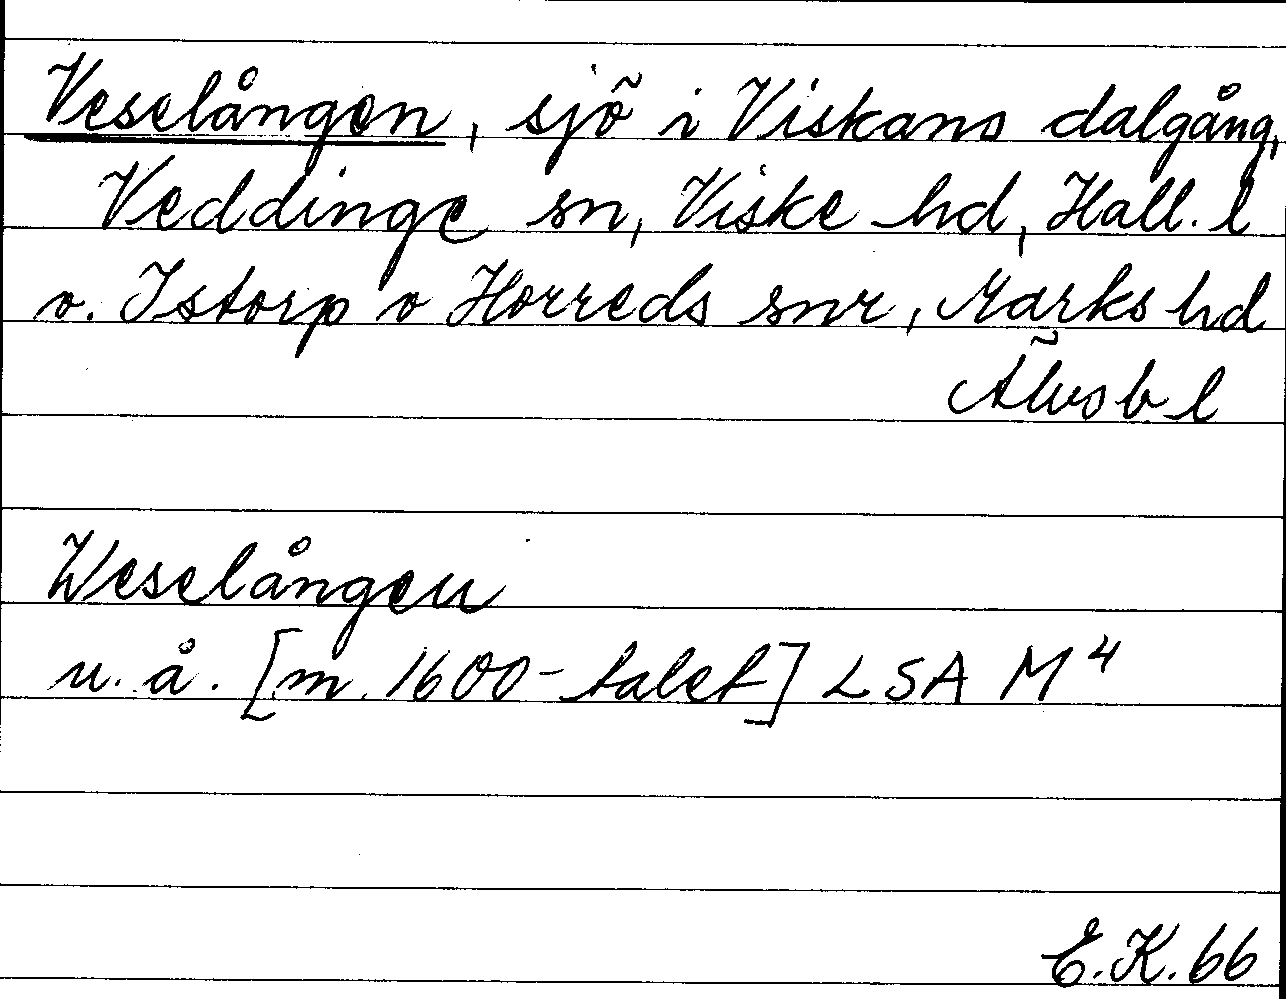 Veselången, sjö i Viskans dalgång,
Veddinge sn, Viske hd, Hall. l
o. Istorp o Horreds snr, Marks hd
Älvsb l
Weselången
u. å. [m. 1600-talet] LSA M 4
E.K. 66